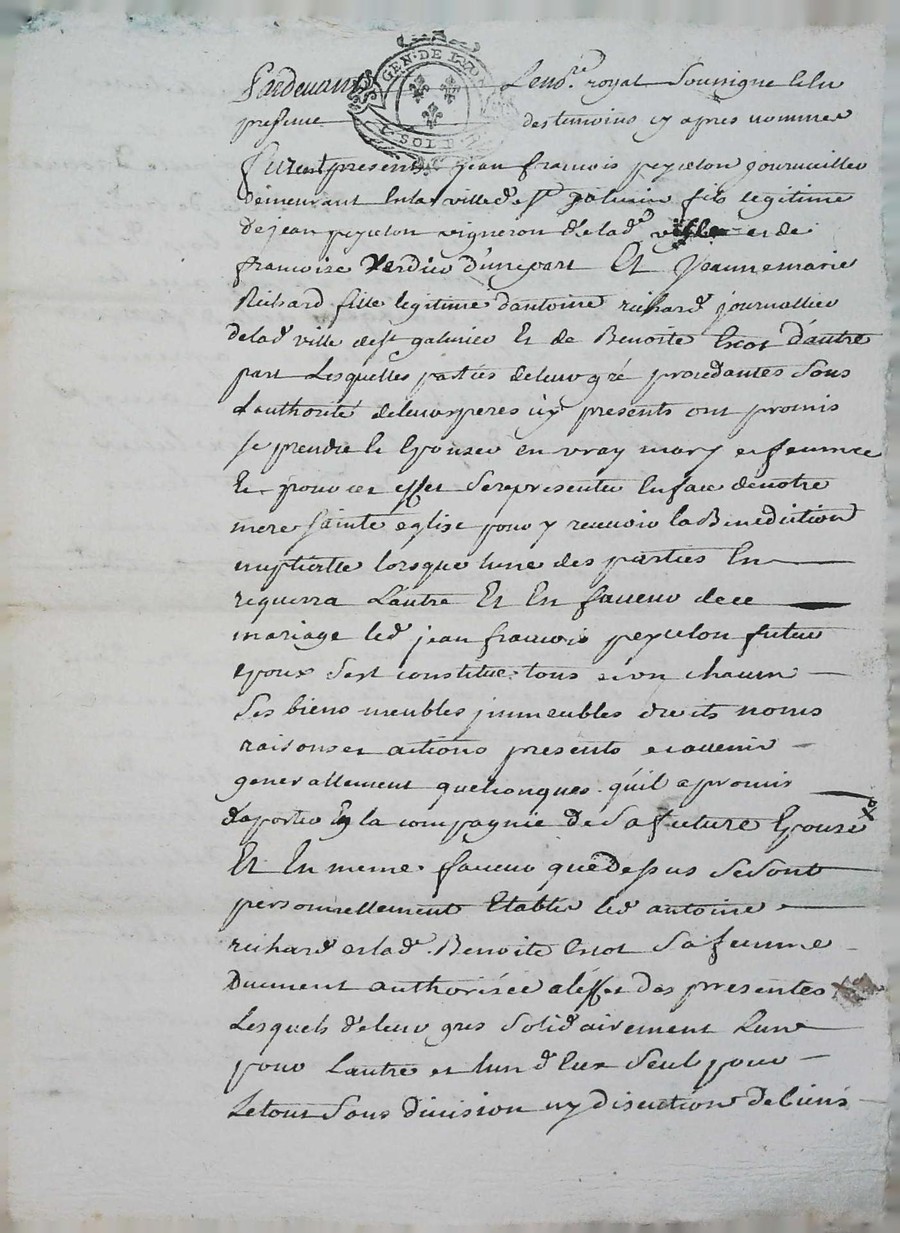 GEN. DE LYON
2. SOLS
Pardevant Le no.re royal Soussigne & En
presence des temoins cy apres nommes
furent presents jean francois peyzelon journaillier
demeurant En la ville de st galmier fils legitime
De jean peyzelon vigneron de lad.e ville et de
francoise Verdier D'une part Et Jeanne marie
Richard fille legitime d'antoine richard journallier
de lad ville de st galmier Et de Benoite Escot D'autre
part Lesquelles parties de leur gré procedantes Sous
L'authorité de leurs peres icy presents ont promis
se prendre & Epouser en vray mary et femme
Et pour cet effet Se representer En face de notre
mere sainte eglise pour y recevoir la Benediction
nuptialle lorsque lune des parties En
requerra L'autre Et En faveur de ce
mariage led jean francois peyzelon futur
epoux s'est constitué tous & un chacun
Ses biens meubles jmmeubles droits noms
raisons et actions presents & avenir
generallement quelconques qu'il a promis
d'aporter En la compagnie de Sa future Epouse
Et En meme faveur que Dessus Se Sont
personnellement Etablis led antoine
richard et lad Benoite Escot Sa femme
Duement authorisée a l'effet des presentes
Lesquels de leur gres Solidairement L'un
pour L'autre et l'un d'Eux Seul pour
Le tout Sans division ny discution de biens